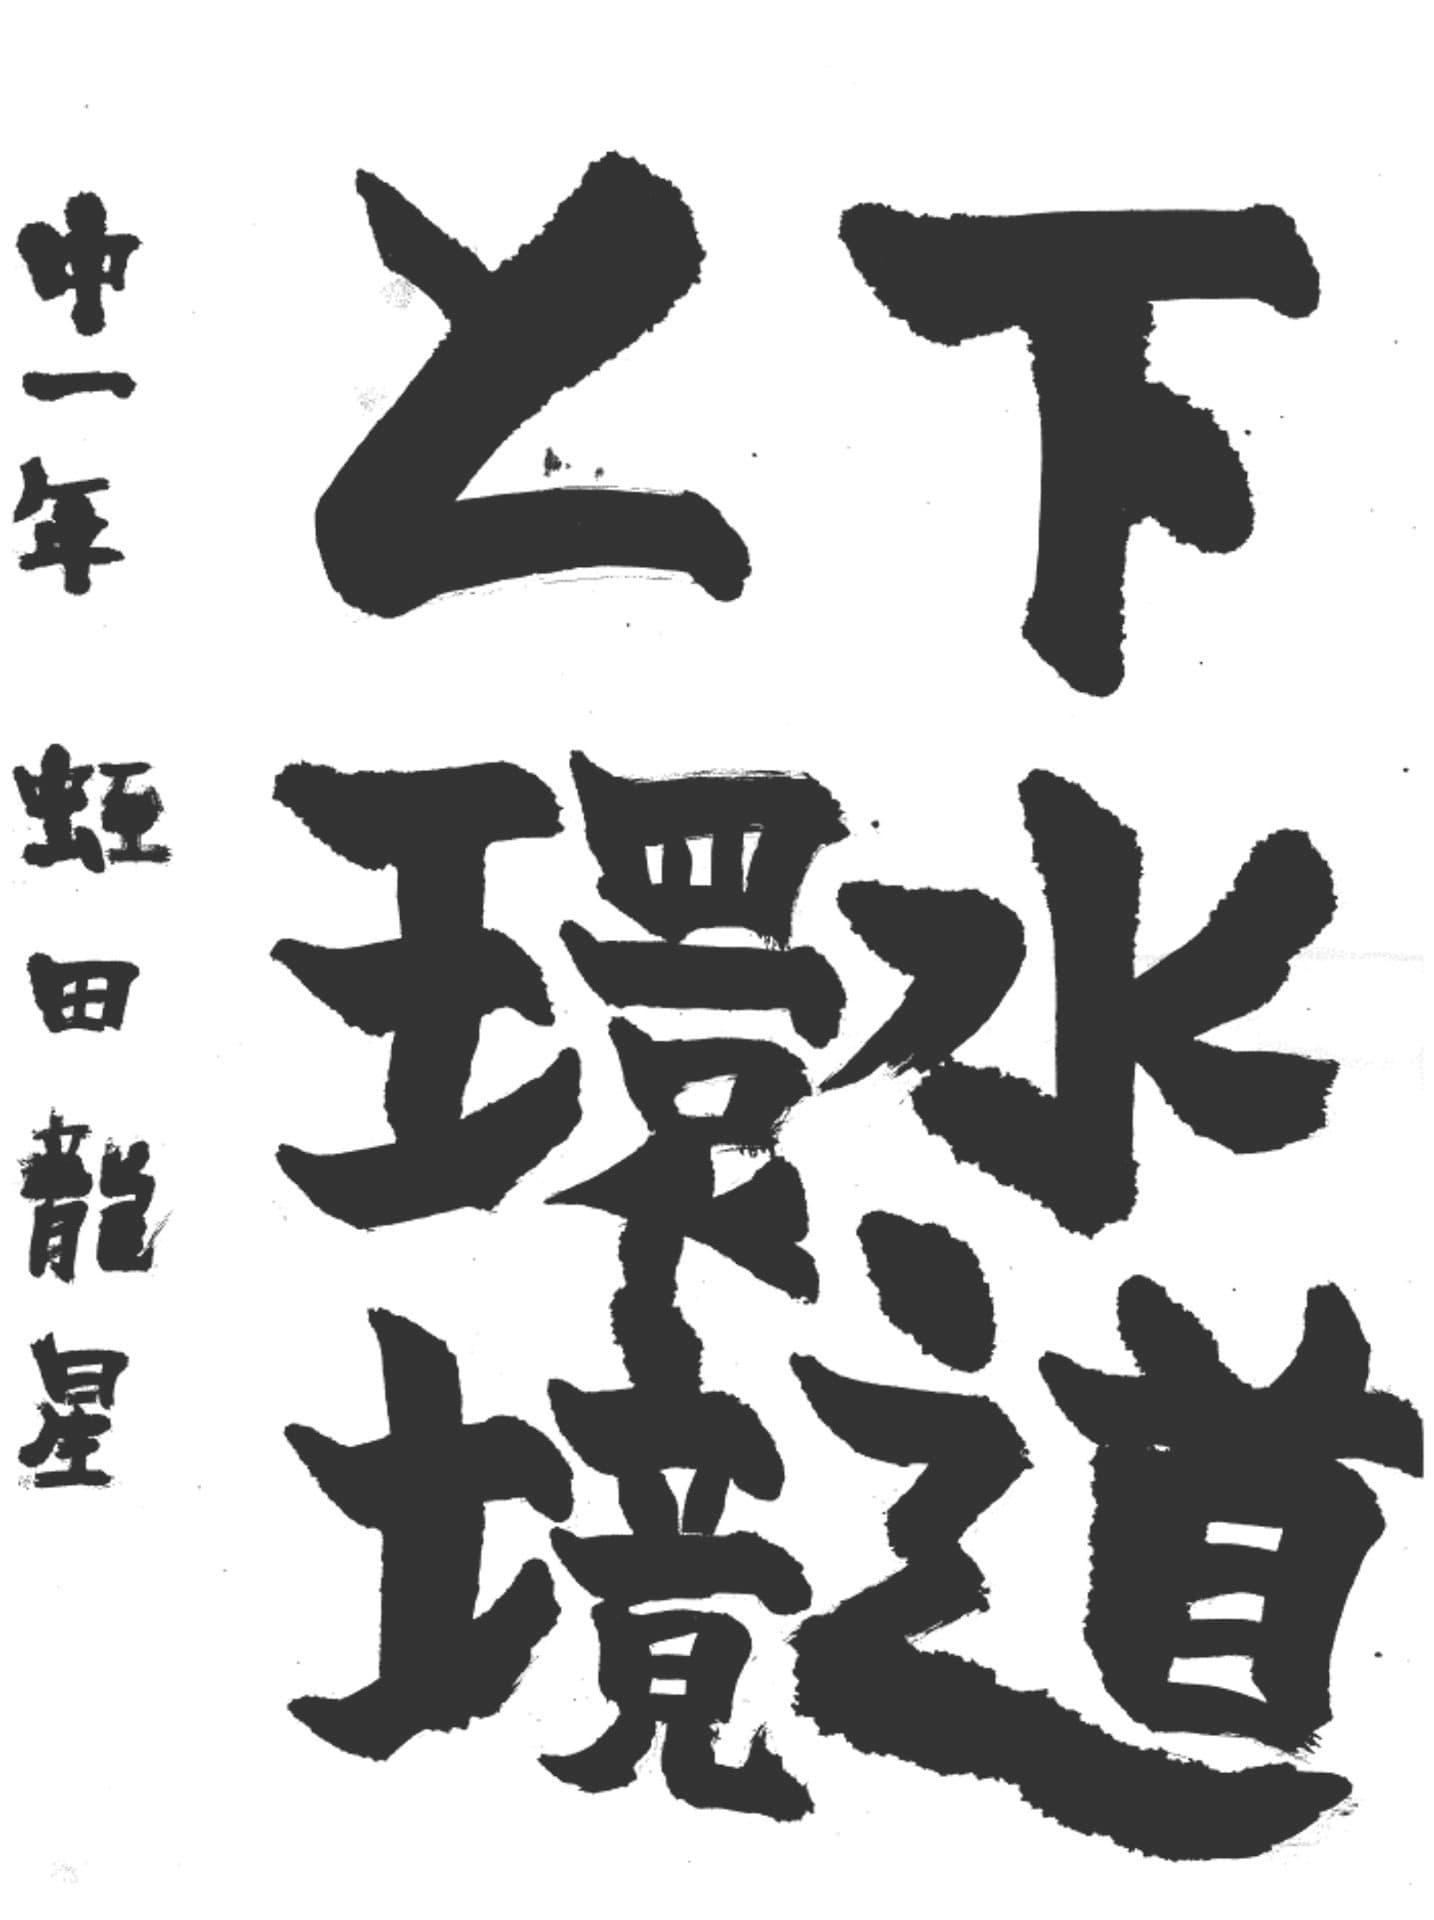 下水道
と環境
中一年 蛭田龍星